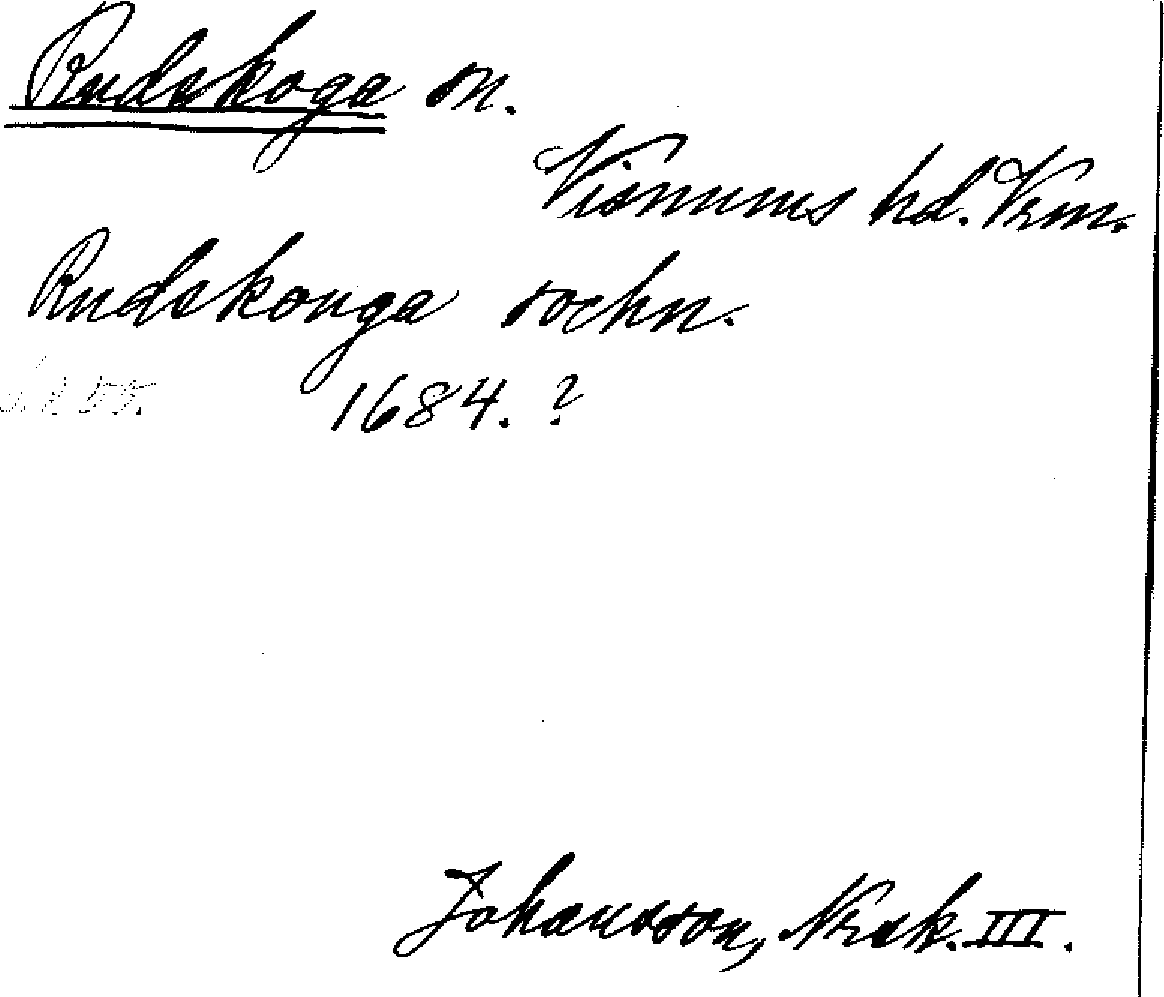 Rudskoga sn.
Visnums hd. Vrm.
Rudskouga sochn.
1684. ?
Johansson, Nrsk. III.